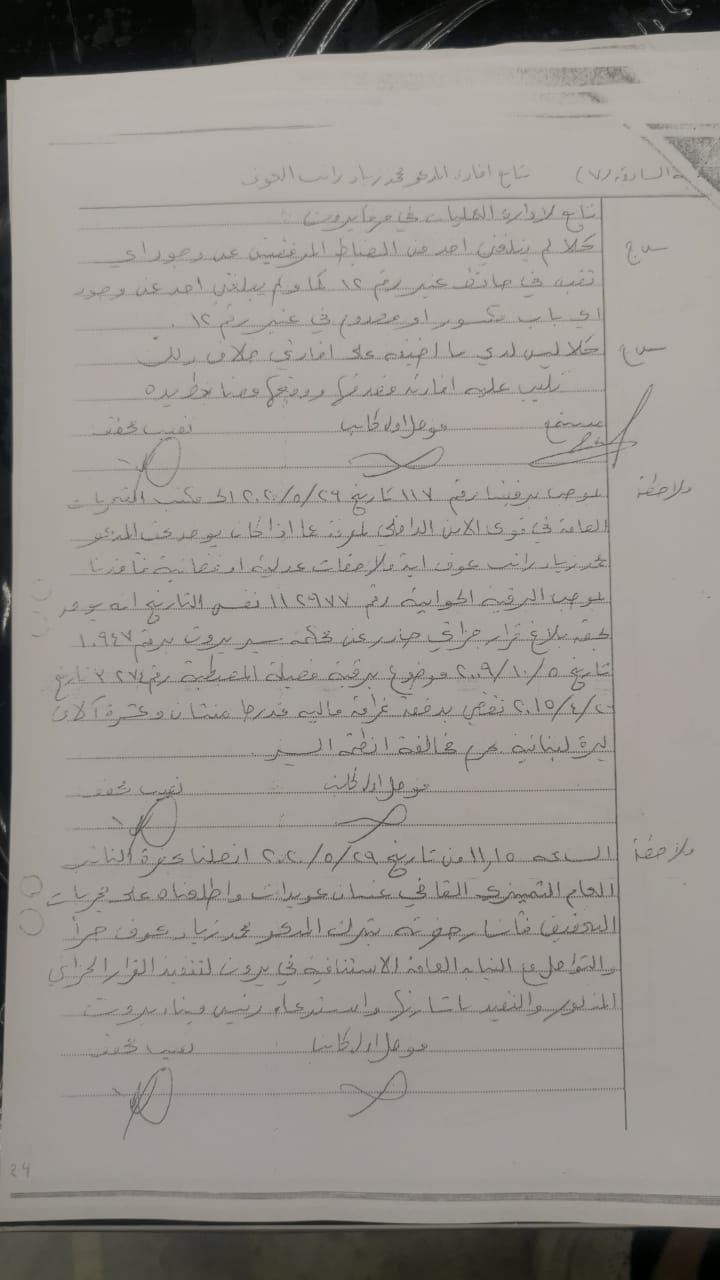 السابقة (٧) تابع افادة المدعو محمد زياد راتب العوف
تابع لادارة العمليات في مرفأ بيروت :
س ج كلا لم يبلغني احد من الضباط المرفقين عن وجود اي
ثقبه في حائط عنبر رقم ١٢ كما ولم يبلغني احد عن وجود
اي باب مكسور او مخلوع في عنبر رقم ١٢ .
س ج كلا ليس لدي ما اضيفه على افادتي خلاف ذلك
تليت عليه افادته فصدقها ووقعها معنا بخط يده
مستمع مؤهل اول كاتب نقيب محقق
ملاحظة بموجب برقيتنا رقم ١١٧ تاريخ ٢٠٢٠/٥/٢٩ الى مكتب التحريات
العامة في قوى الامن الداخلي لمعرفة عما اذا كان يوجد بحق المدعو
محمد زياد راتب عوف اية ملاحقات عدلية او قضائية فافدنا
بموجب البرقية الجوابية رقم ١١٢٩٧٧ نفس التاريخ انه يوجد
بحقه بلاغ قرار جزائي صادر عن محكمة سير بيروت برقم ١٠٩٤٧
تاريخ ٢٠٠٩/١٠/٥ موضوع برقية فصيلة رقم ٣٢٧٤ تاريخ
٢٠١٥/٤/٢٠ تقضي بدفعه غرامة ماليه قدرها مئتان وعشرة آلاف
ليرة لبنانية بجرم مخالفة انظمة السير
مؤهل اول كاتب نقيب محقق
ملاحظة الساعه ١١,١٥ من تاريخ ٢٠٢٠/٥/٢٩ اتصلنا بحضرة النائب
العام التمييزي القاضي غسان عويدات واطلعناه على مجريات
التحقيق فأشار حضرته بترك المدعو محمد زياد عوف حراً
والتواصل مع النيابه العامة الاستئنافية في بيروت لتنفيذ القرار الجزائي
المذكور والتقيد باشارتها واستدعاء رئيس ميناء بيروت
مؤهل اول كاتب نقيب محقق
24